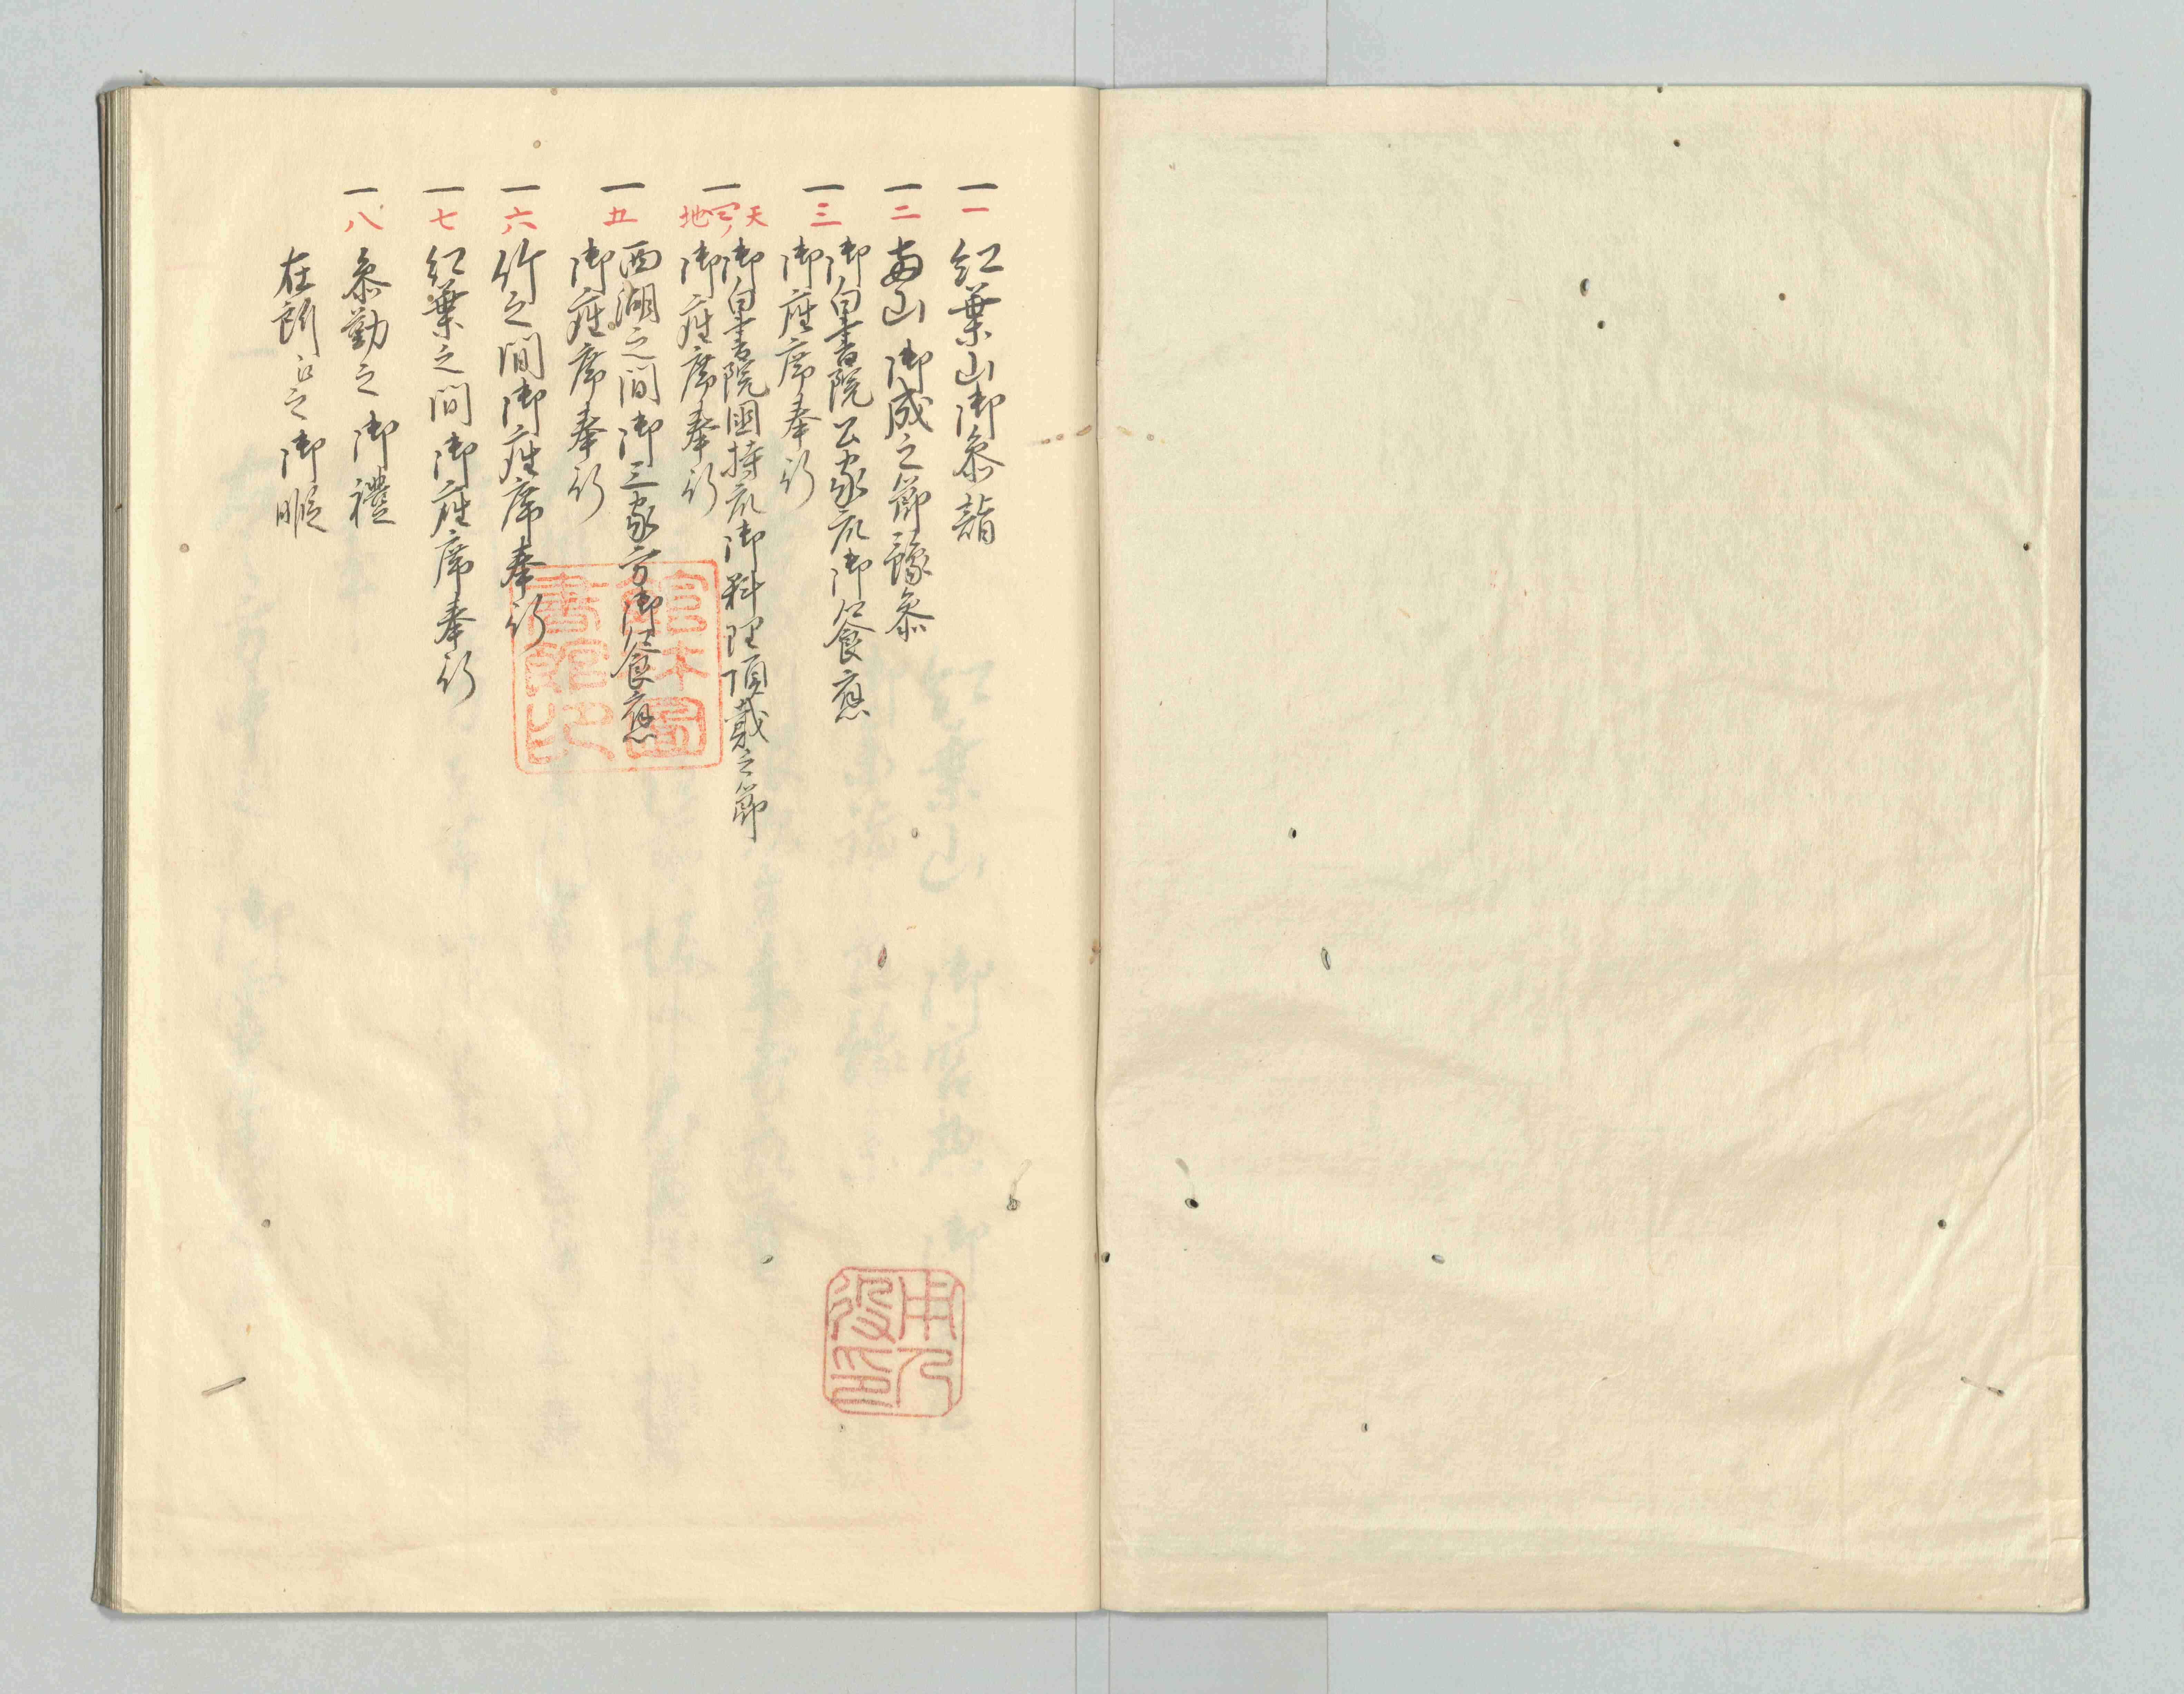 一 一 紅葉山御叅詣
一 二 両山 御成之節豫叅
一 三 御白書院公家衆御饗應
御座席奉行
一 天四地 御白書院國持衆御料理頂戴之節
御座席奉行
一 五 西湖之間御三家方御饗應
御座席奉行
一 六 竹之間御座席奉行
一 七 紅葉之間御座席奉行
一 八 叅勤之 御禮
在所江之御暇
館林圖書館印
用人役印